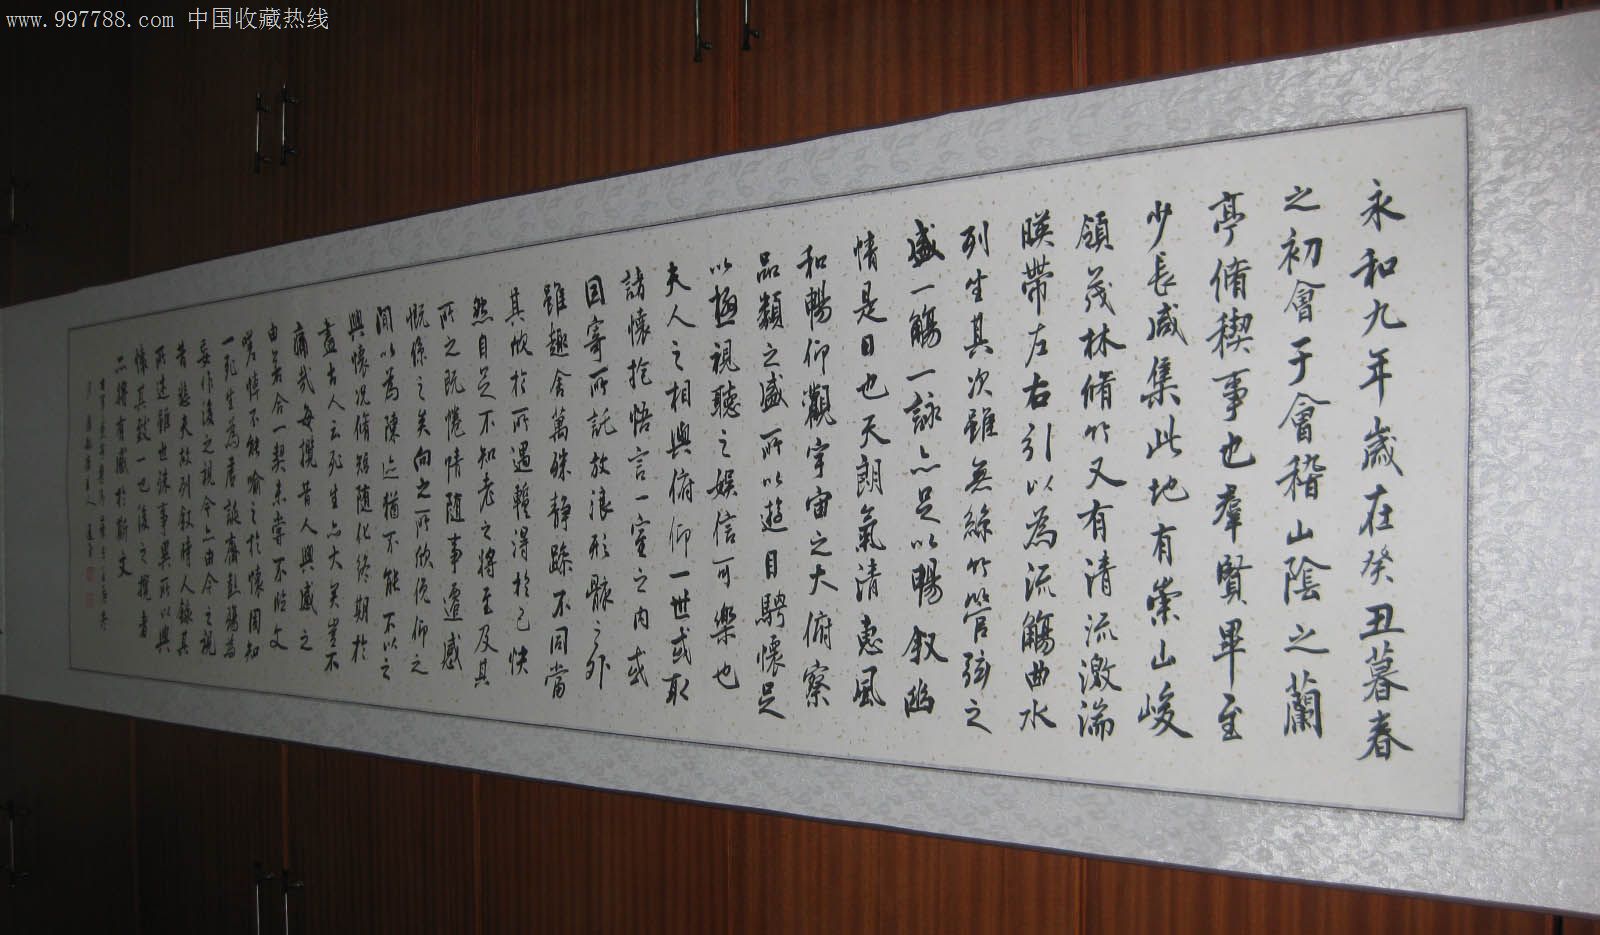 www.997788.com 中国收藏热线
永和九年歲在癸丑暮春
之初會于會稽山陰之蘭
亭脩稧事也羣賢畢至
少長咸集此地有崇山峻
領茂林脩竹又有清流激湍
暎帶左右引以為流觴曲水
列坐其次雖無絲竹管弦之
盛一觴一詠亦足以暢敘幽
情是日也天朗氣清惠風
和暢仰觀宇宙之大俯察
品類之盛所以遊目騁懷足
以極視聽之娛信可樂也
夫人之相與俯仰一世或取
諸懷抱悟言一室之內或
因寄所託放浪形骸之外
雖趣舍萬殊靜躁不同當
其欣於所遇蹔得於己快
然自足不知老之將至及其
所之既惓情隨事遷感
慨係之矣向之所欣俛仰之
間以為陳迹猶不能不以之
興懷況脩短隨化終期於
盡古人云死生亦大矣豈不
痛哉每攬昔人興感之
由若合一契未嘗不臨文
嗟悼不能喻之於懷固知
一死生為虛誕齊彭殤為
妄作後之視今亦由今之視
昔悲夫故列敘時人錄其
所述雖世殊事異所以興
懷其致一也後之攬者
亦將有感於斯文